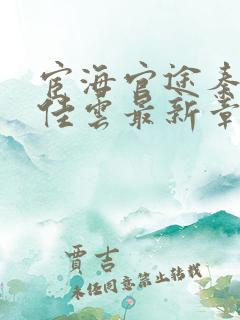 宦海官途秦
佳雲最新章
賈吉
未經同意禁止轉載